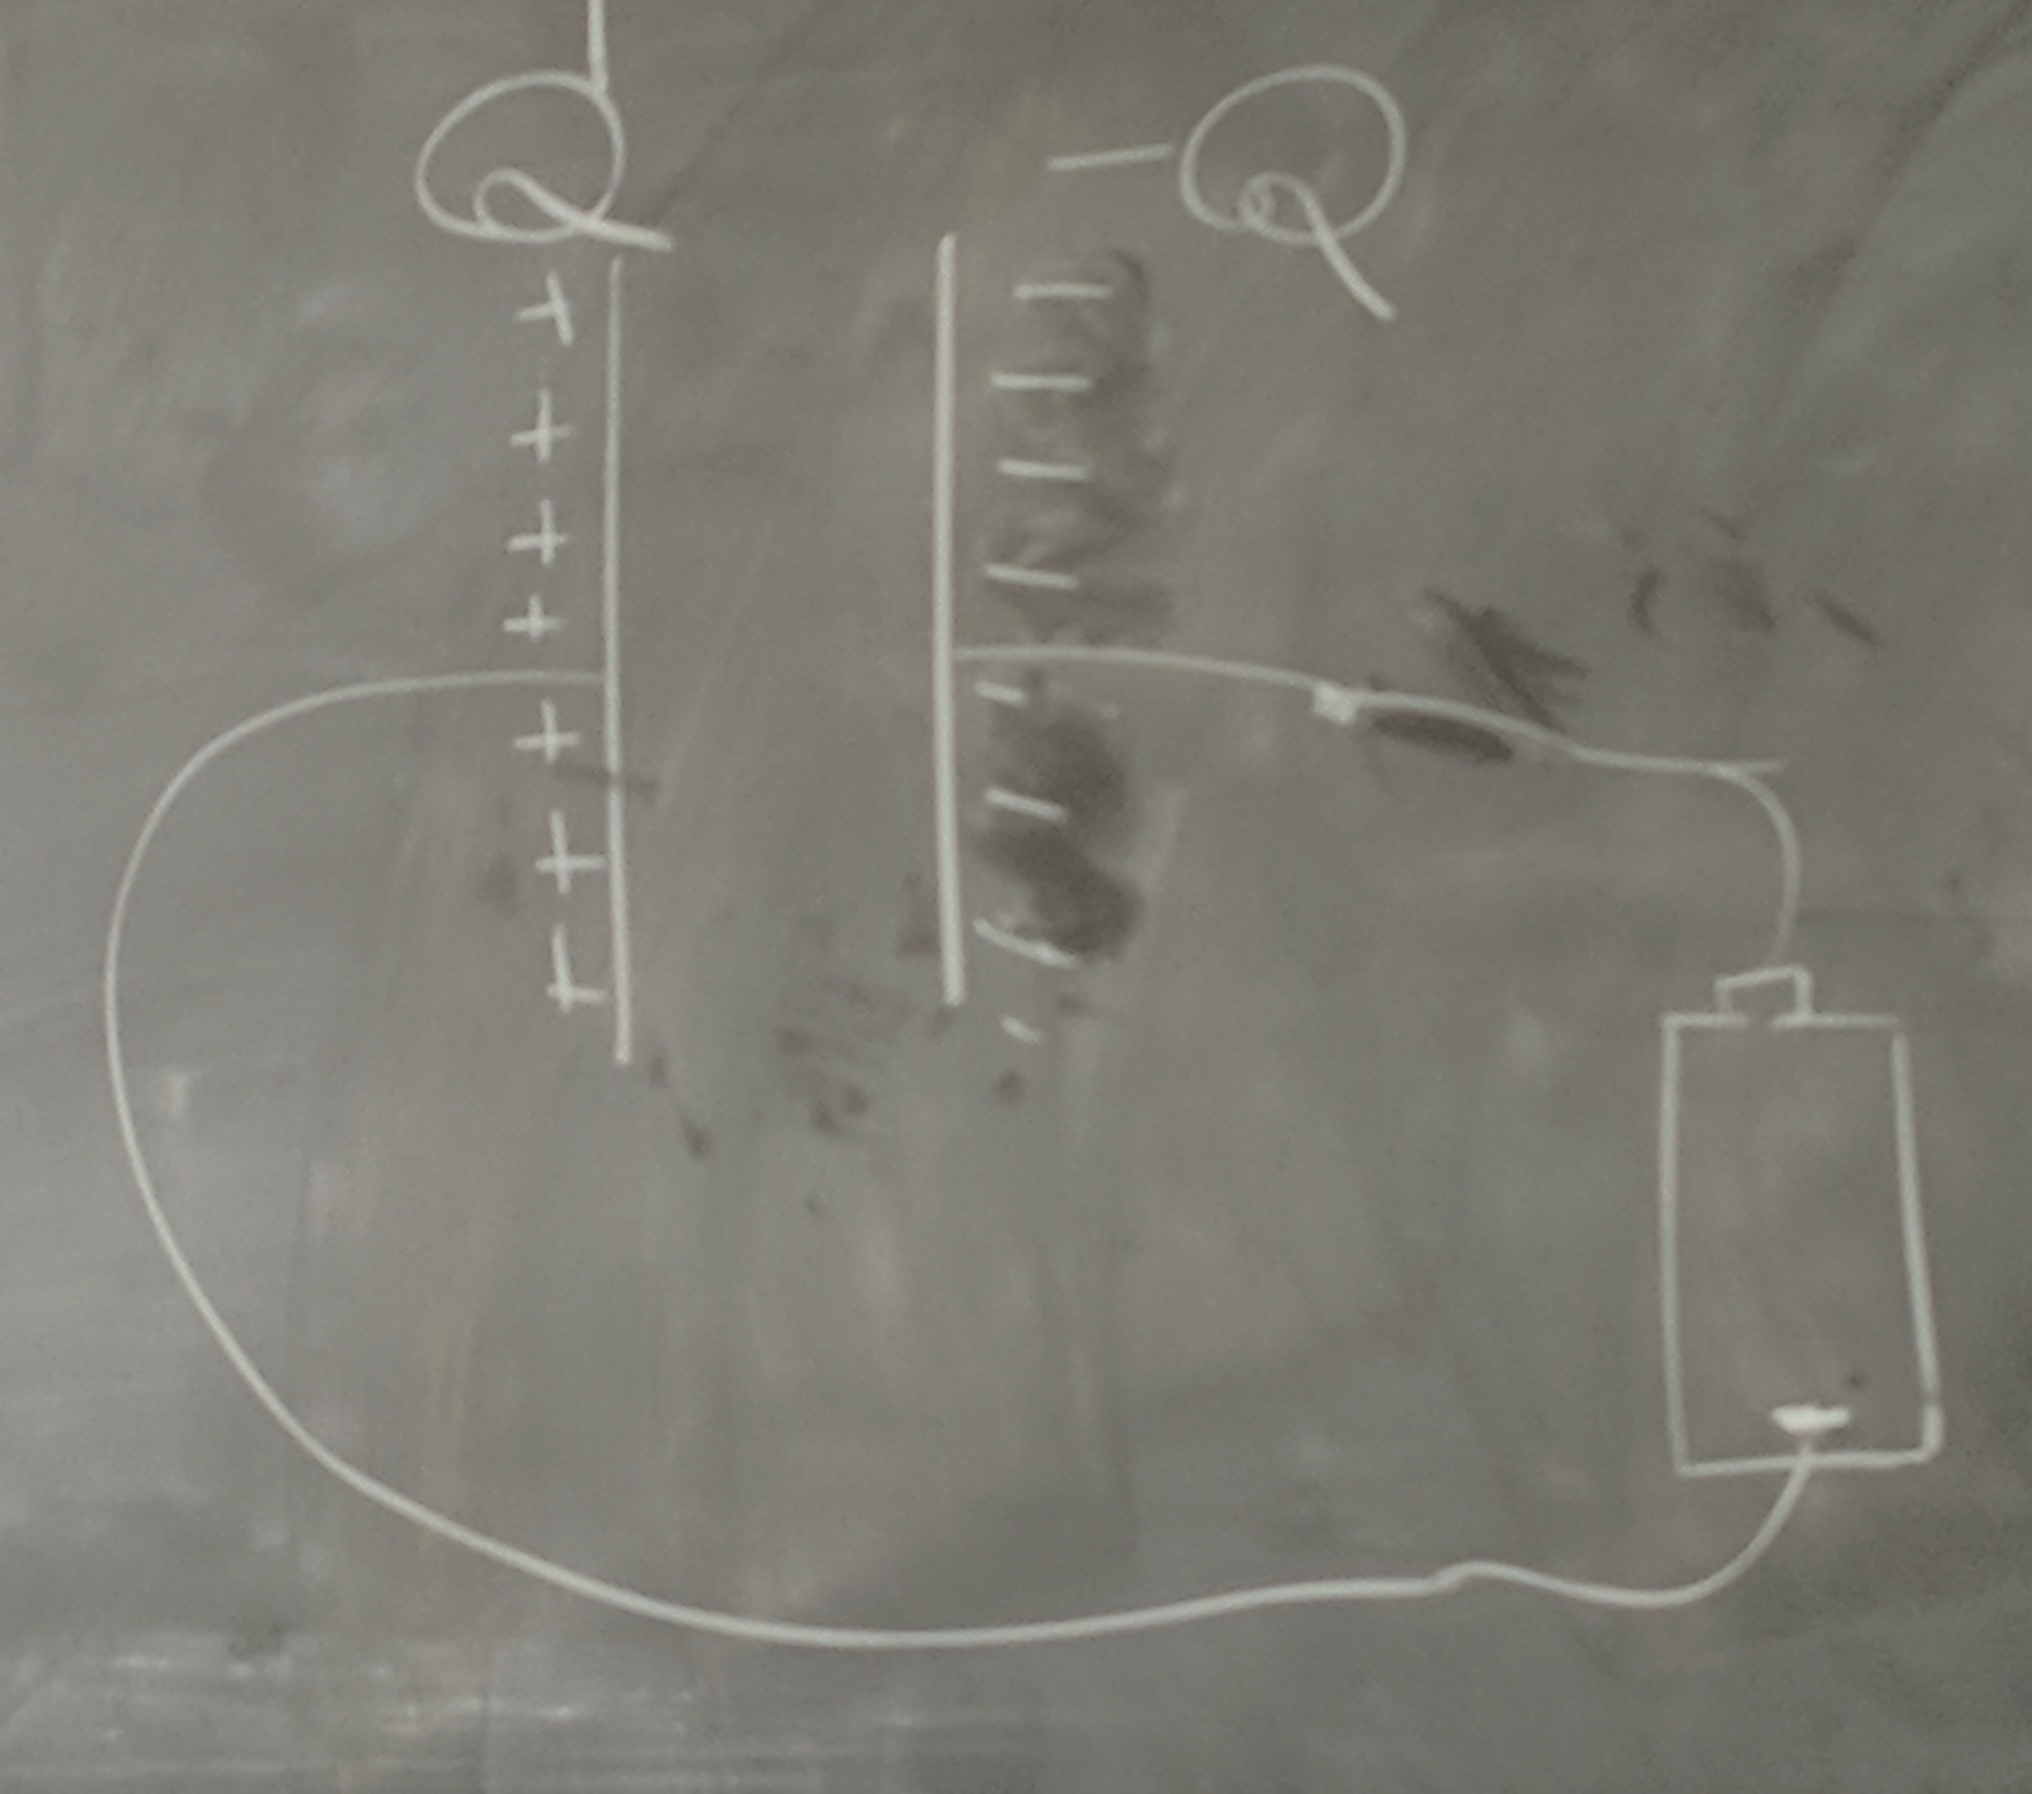 Q -Q
+ -
+ -
+ -
+ -
+ -
+ -
+ -
-